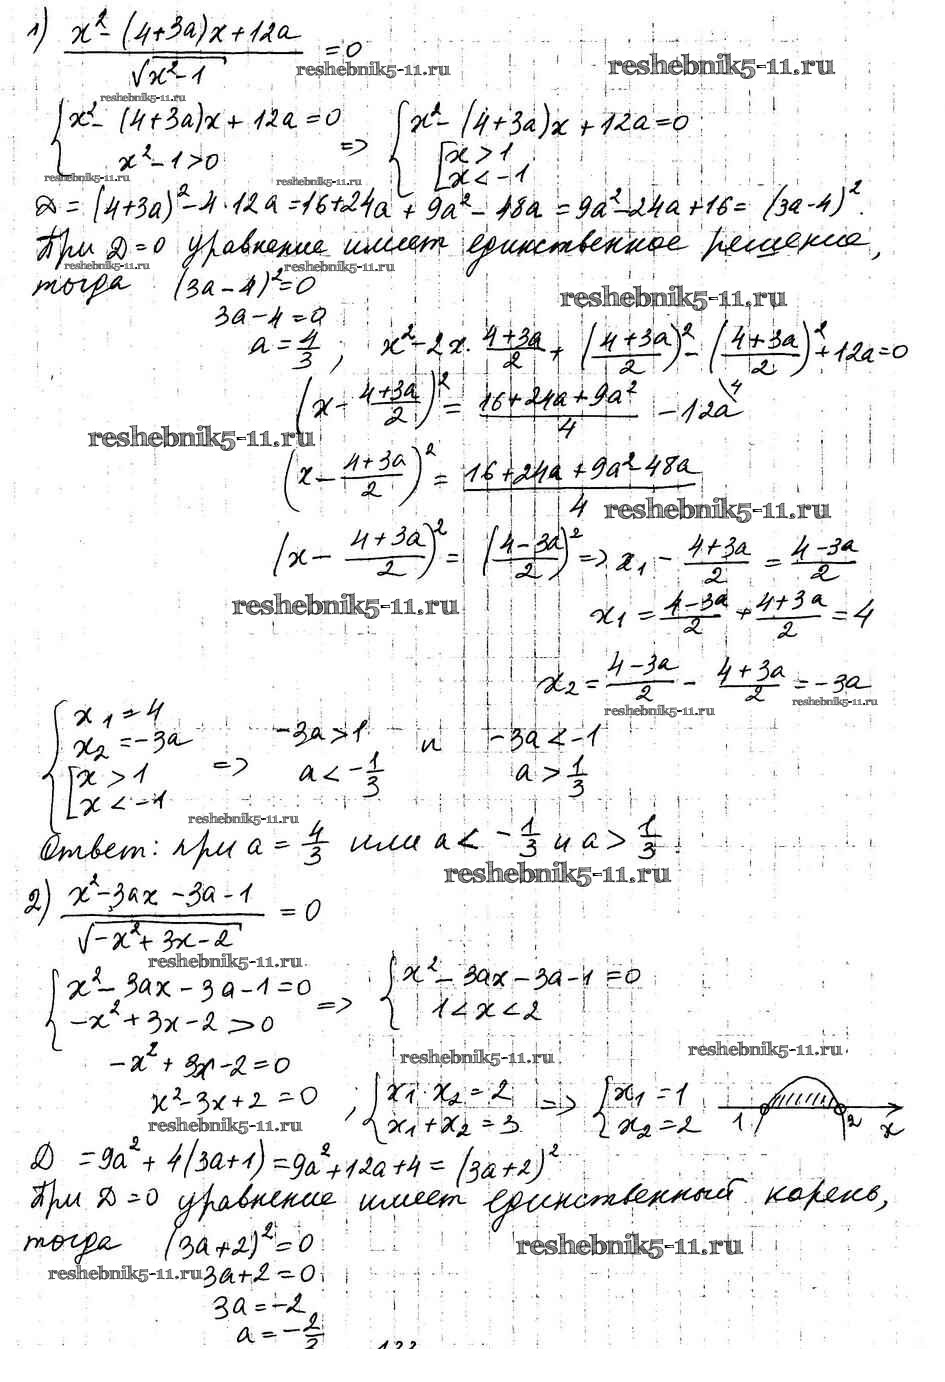 1) (x² - (4+3a)x + 12a) / √(x²-1) = 0
reshebnik5-11.ru reshebnik5-11.ru
reshebnik5-11.ru
{ x² - (4+3a)x + 12a = 0 => { x² - (4+3a)x + 12a = 0
x² - 1 > 0 [ x > 1
reshebnik5-11.ru reshebnik5-11.ru x < -1
D = (4+3a)² - 4·12a = 16+24a + 9a² - 48a = 9a² - 24a + 16 = (3a-4)².
При D = 0 уравнение имеет единственное решение,
reshebnik5-11.ru reshebnik5-11.ru
тогда (3a-4)² = 0
reshebnik5-11.ru
3a - 4 = 0
a = 4/3 ; x² - 2x · (4+3a)/2 + ((4+3a)/2)² - ((4+3a)/2)² + 12a = 0
(x - (4+3a)/2)² = (16+24a+9a²)/4 - 12a \4
reshebnik5-11.ru
(x - (4+3a)/2)² = (16+24a+9a²-48a)/4
reshebnik5-11.ru
(x - (4+3a)/2)² = ((4-3a)/2)² => x₁ - (4+3a)/2 = (4-3a)/2
reshebnik5-11.ru
x₁ = (4-3a)/2 + (4+3a)/2 = 4
x₂ = (4-3a)/2 - (4+3a)/2 = -3a
reshebnik5-11.ru reshebnik5-11.ru
{ x₁ = 4
x₂ = -3a => -3a > 1 и -3a < -1
[ x > 1 a < -1/3 a > 1/3
x < -1
reshebnik5-11.ru
Ответ: при a = 4/3 или a < -1/3 и a > 1/3.
reshebnik5-11.ru
2) (x² - 3ax - 3a - 1) / √(-x² + 3x - 2) = 0
reshebnik5-11.ru
{ x² - 3ax - 3a - 1 = 0 => { x² - 3ax - 3a - 1 = 0
-x² + 3x - 2 > 0 1 < x < 2
-x² + 3x - 2 = 0
reshebnik5-11.ru reshebnik5-11.ru
x² - 3x + 2 = 0 , { x₁ · x₂ = 2 => { x₁ = 1
x₁ + x₂ = 3 x₂ = 2 1 2 x
reshebnik5-11.ru
D = 9a² + 4(3a+1) = 9a² + 12a + 4 = (3a+2)²
При D = 0 уравнение имеет единственный корень,
тогда (3a+2)² = 0
reshebnik5-11.ru
reshebnik5-11.ru 3a + 2 = 0
3a = -2
a = -2/3